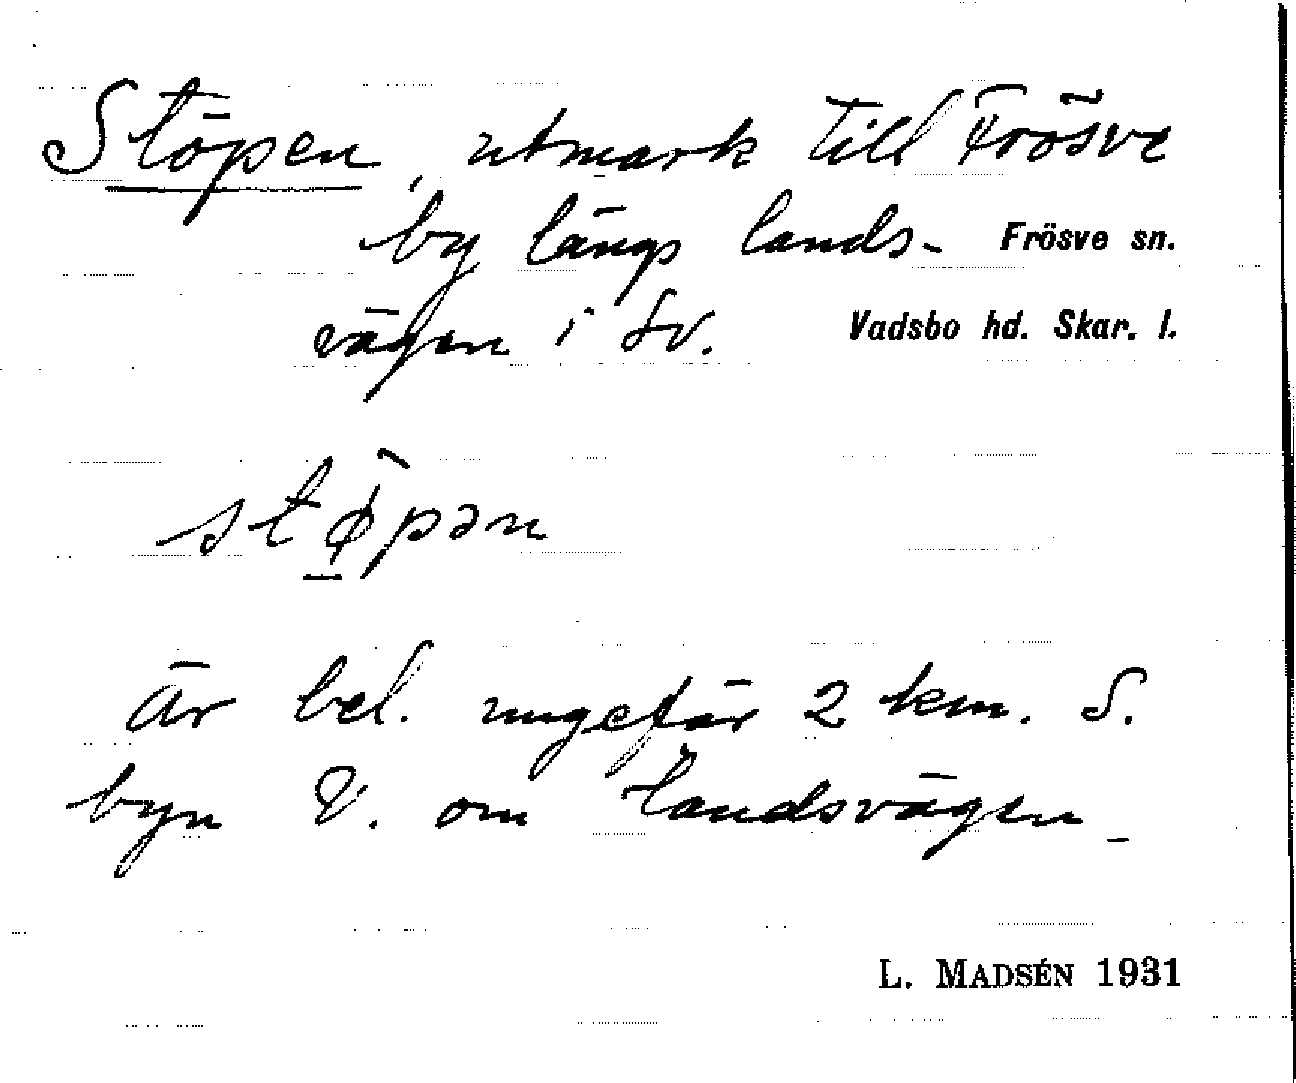 Stöpen, utmark till Frösve
by längs lands- Frösve sn.
vägen i Sv. Vadsbo hd. Skar. l.
stø̀pən
Är bel. ungefär 2 km. S.
byn V. om landsvägen.
L. MADSÉN 1931